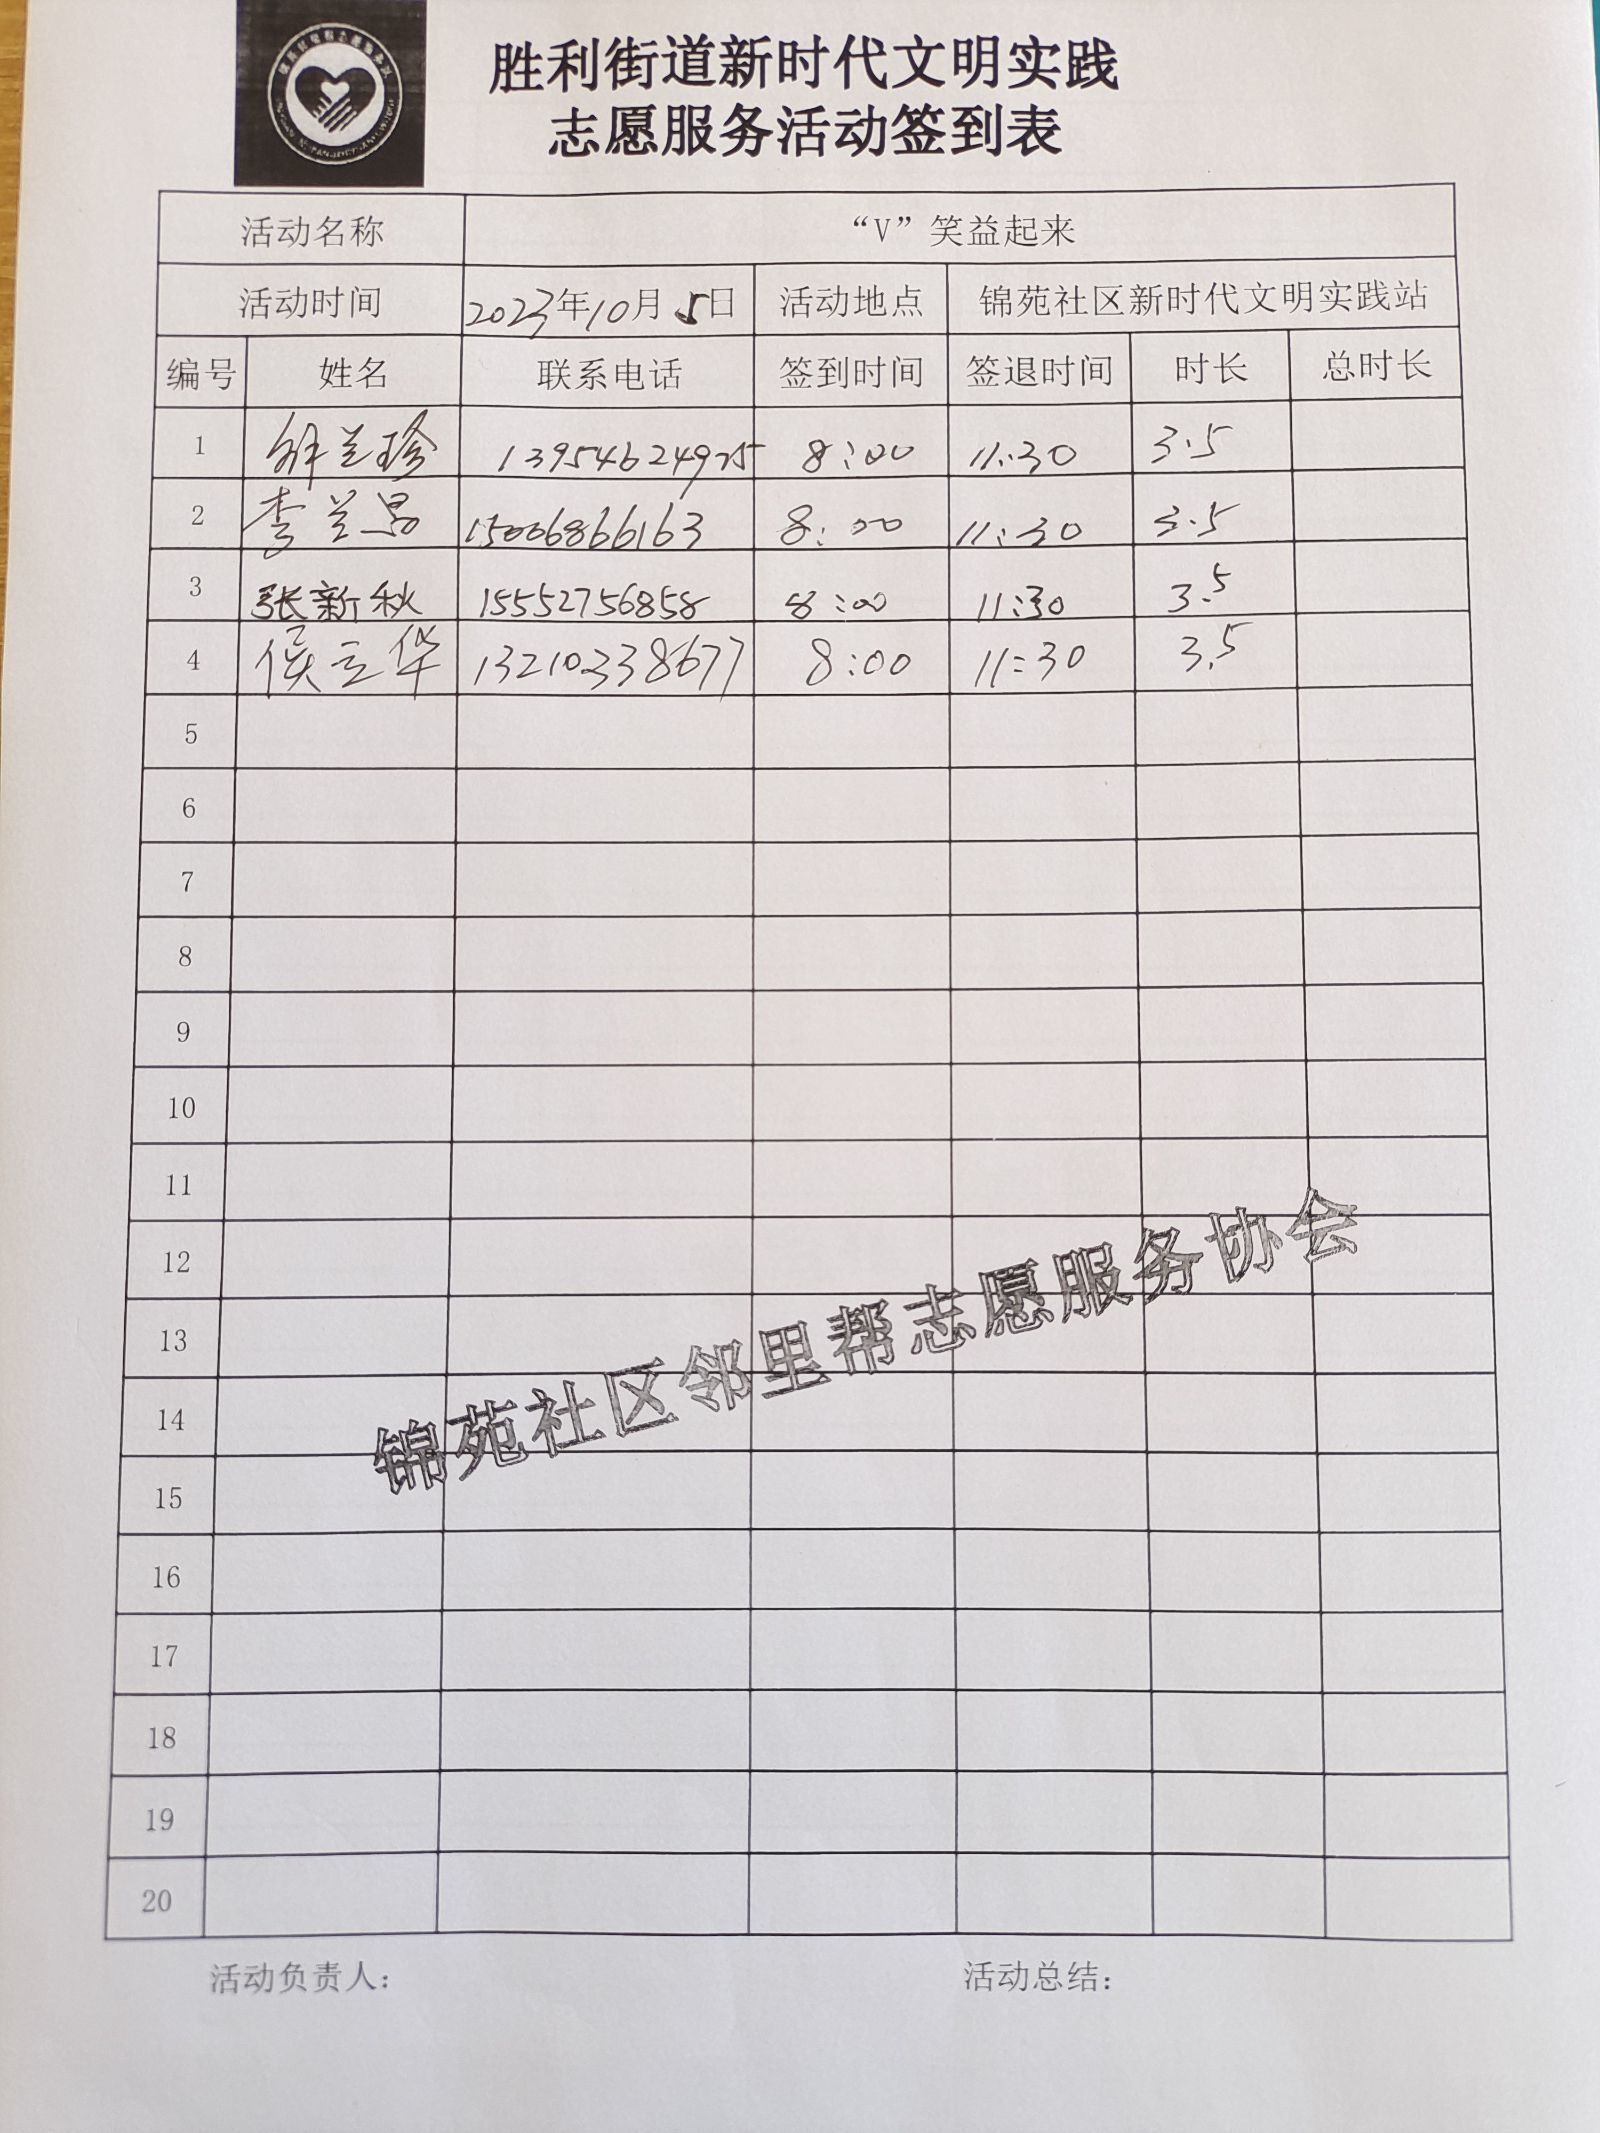 胜利街道新时代文明实践
志愿服务活动签到表
活动名称 “V”笑益起来
活动时间 2023年10月5日 活动地点 锦苑社区新时代文明实践站
编号 姓名 联系电话 签到时间 签退时间 时长 总时长
1 兰珍 8:00 11:30 3.5
2 李兰 15006866163 8:00 11:30 3.5
3 张新秋 15552756858 8:00 11:30 3.5
4 侯立华 13210338677 8:00 11:30 3.5
5
6
7
8
9
10
11
12
13
14
15
16
17
18
19
20
锦苑社区邻里帮志愿服务协会
活动负责人: 活动总结: